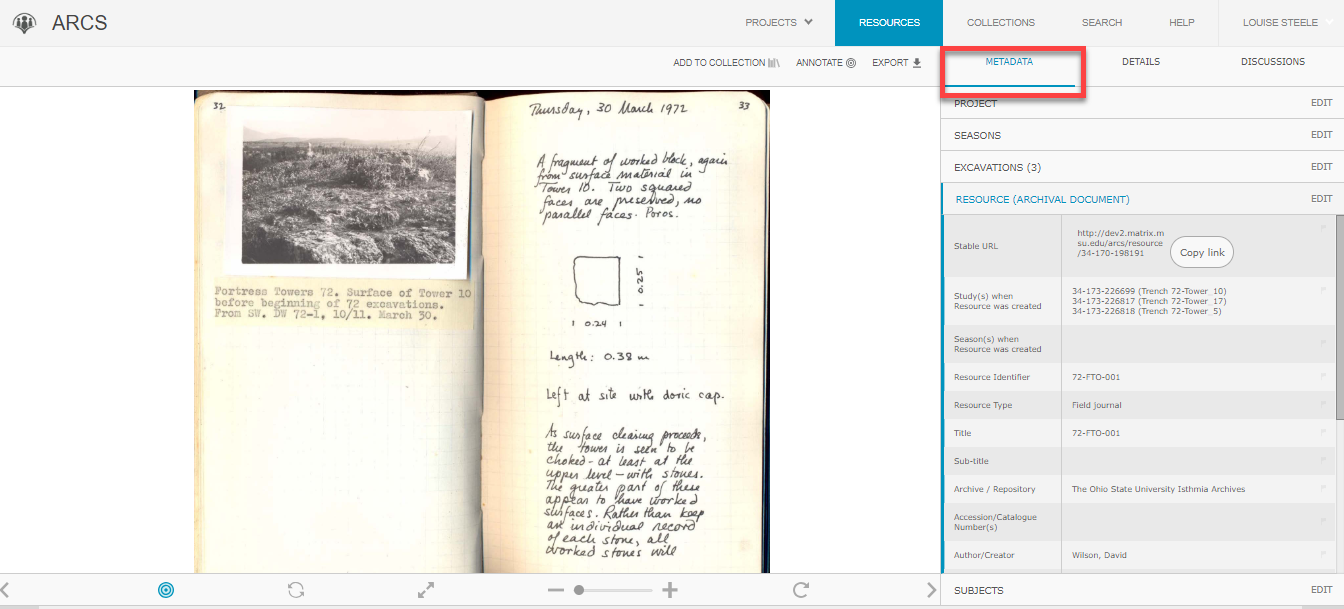 ARCS
PROJECTS
RESOURCES
COLLECTIONS
SEARCH
HELP
LOUISE STEELE
ADD TO COLLECTION
ANNOTATE
EXPORT
METADATA
DETAILS
DISCUSSIONS
32
Fortress Towers 72. Surface of Tower 10
before beginning of 72 excavations.
From SW. DW 72-1, 10/11. March 30.
Thursday, 30 March 1972
33
A fragment of worked block, again
from surface material in
Tower 10. Two squared
faces are preserved, no
parallel faces. Poros.
0.25
0.24
Length: 0.38 m
Left at site with doric cap.
As surface clearing proceeds,
the tower is seen to be
choked - at least at the
upper level - with stones.
The greater part of these
appear to have worked
surfaces. Rather than keep
an individual record
of each stone, all
worked stones will
PROJECT EDIT
SEASONS EDIT
EXCAVATIONS (3) EDIT
RESOURCE (ARCHIVAL DOCUMENT) EDIT
Stable URL
http://dev2.matrix.m
su.edu/arcs/resource
/34-170-198191
Copy link
Study(s) when
Resource was created
34-173-226699 (Trench 72-Tower_10)
34-173-226817 (Trench 72-Tower_17)
34-173-226818 (Trench 72-Tower_5)
Season(s) when
Resource was created
Resource Identifier 72-FTO-001
Resource Type Field journal
Title 72-FTO-001
Sub-title
Archive / Repository The Ohio State University Isthmia Archives
Accession/Catalogue
Number(s)
Author/Creator Wilson, David
SUBJECTS EDIT